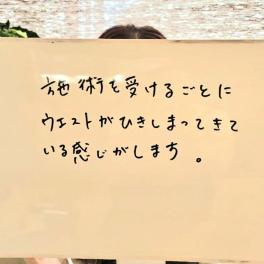 施術を受けるごとに
ウエストがひきしまってきて
いる感じがします。